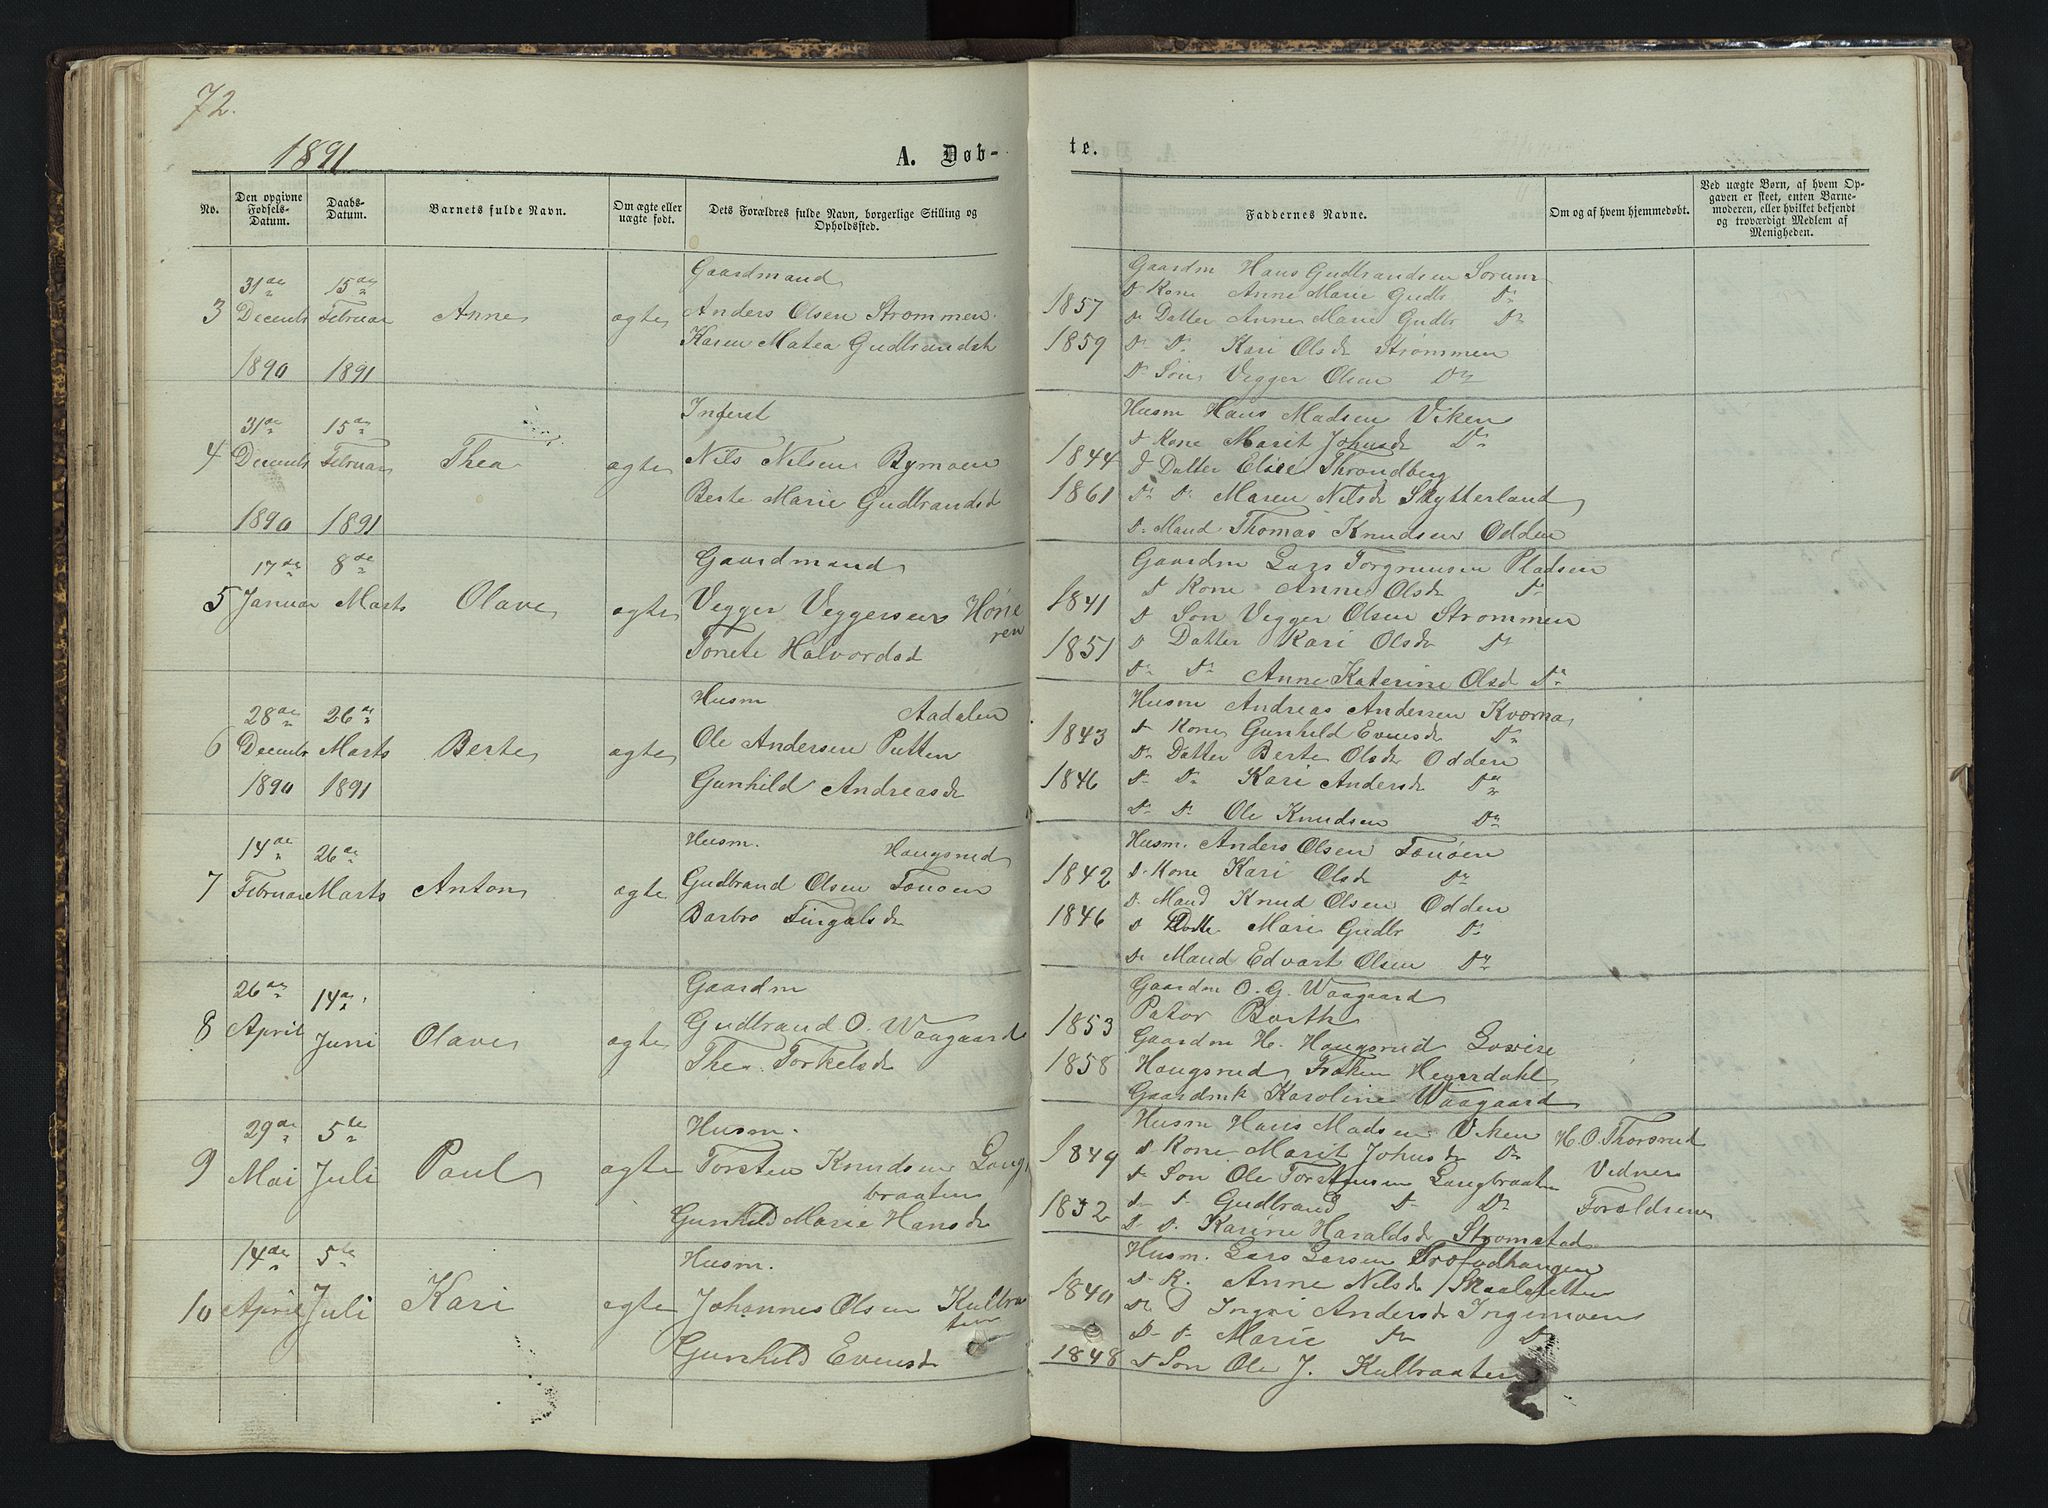 72.
1891
A. Døb-
te.
No.
Den opgivne Fødsels-Datum.
Daabs-Datum.
Barnets fulde Navn.
Om ægte eller uægte født.
Dets Forældres fulde Navn, borgerlige Stilling og Opholdssted.
Faddernes Navne.
Om og af hvem hjemmedøbt.
Ved uægte Børn, af hvem Op-
gaven er skeet, enten Barne-
moderen, eller hvilket bekjendt
og troværdigt Medlem af
Menigheden.
3
31de Decembr 1890
15de Februar 1891
Anne
ægte
Gaardmand
Anders Olsen Strømmen
Karen Matea Gudbrandsd
1857
1859
Gaardm Hans Gudbrandsen Sorum
Do Kone Anne Marie Gudbr Do
Do Datter Anne Marie Gudbr Do
Do Do Kari Olsdr Strømmen
Do Søn Vegger Olsen Do
4
31de Decembr 1890
15de Februar 1891
Thea
ægte
Inderst
Nils Nilsen Bymoen
Berte Marie Gudbrandsd
1844
1861
Husm Hans Madsen Viken
Do Kone Marit Johnsdr Do
Do Datter Elise Throndberg
Do Do Maren Nilsdr Skytterland
Do Mand Thomas Knudsen Odden
5
17de Januar
8de Marts
Olave
ægte
Gaardmand
Vegger Veggersen Høne
ren
Tonete Halvordsd
1841
1851
Gaardm Lars Torgrimsen Pladsen
Do Kone Anne Olsdr Do
Do Søn Vegger Olsen Strømmen
Do Datter Kari Olsdr Do
Do Do Anne Katerine Olsd Do
6
28de Decembr 1890
26de Marts 1891
Berte
ægte
Husm Aadalen
Ole Andersen Putten
Gunhild Andreasdr
1843
1846
Husm Andreas Andersen Kværna
Do Kone Gunhild Evensdr Do
Do Datter Berte Olsdr Odden
Do Do Kari Andersdr Do
Do Do Ole Knudsen Do
7
14de Februar
26de Marts
Anton
ægte
Husm. Haugsrud
Gudbrand Olsen Tonøen
Barbro Fingalsdr
1842
1846
Husm. Anders Olsen Tonøen
Do Kone Kari Olsdr Do
Do Mand Knud Olsen Odden
Do Dodtr Mari Gudbr Do
Do Mand Edvart Olsen Do
8
26de April
14de Juni
Olave
ægte
Gaardm
Gudbrand O. Waagaard
Thea Torkelsdr
1853
1858
Gaardm O. G. Waagaard
Pator Barth
Gaardm H. Haugsrud Lovise
Haugsrud Frøken Heyerdahl
Gaardmk Karoline Waagaard
9
29de Mai
5te Juli
Paul
ægte
Husm.
Torsten Knudsen Lang
braaten
Gunhild Marie Hansdr
1849
1852
Husm Hans Madsen Viken
Do Kone Marit Johnsdr Do
Do Søn Ole Torstensen Langbraaten
Do Do Gudbrand Do Do
Do Do Karine Haraldsdr Strømstad
H. O. Thorsrud
Vidner
Forældrene
10
14de April
5te Juli
Kari
ægte
Husm.
Johannes Olsen Kulbraa
ten
Gunhild Evensdr
1840
1848
Husm. Lars Larsen
Do K. Anne Nilsdr
Do D Ingri Andersdr Ingemoen
Do Do Marie Do Do
Do Søn Ole J. Kulbraaten